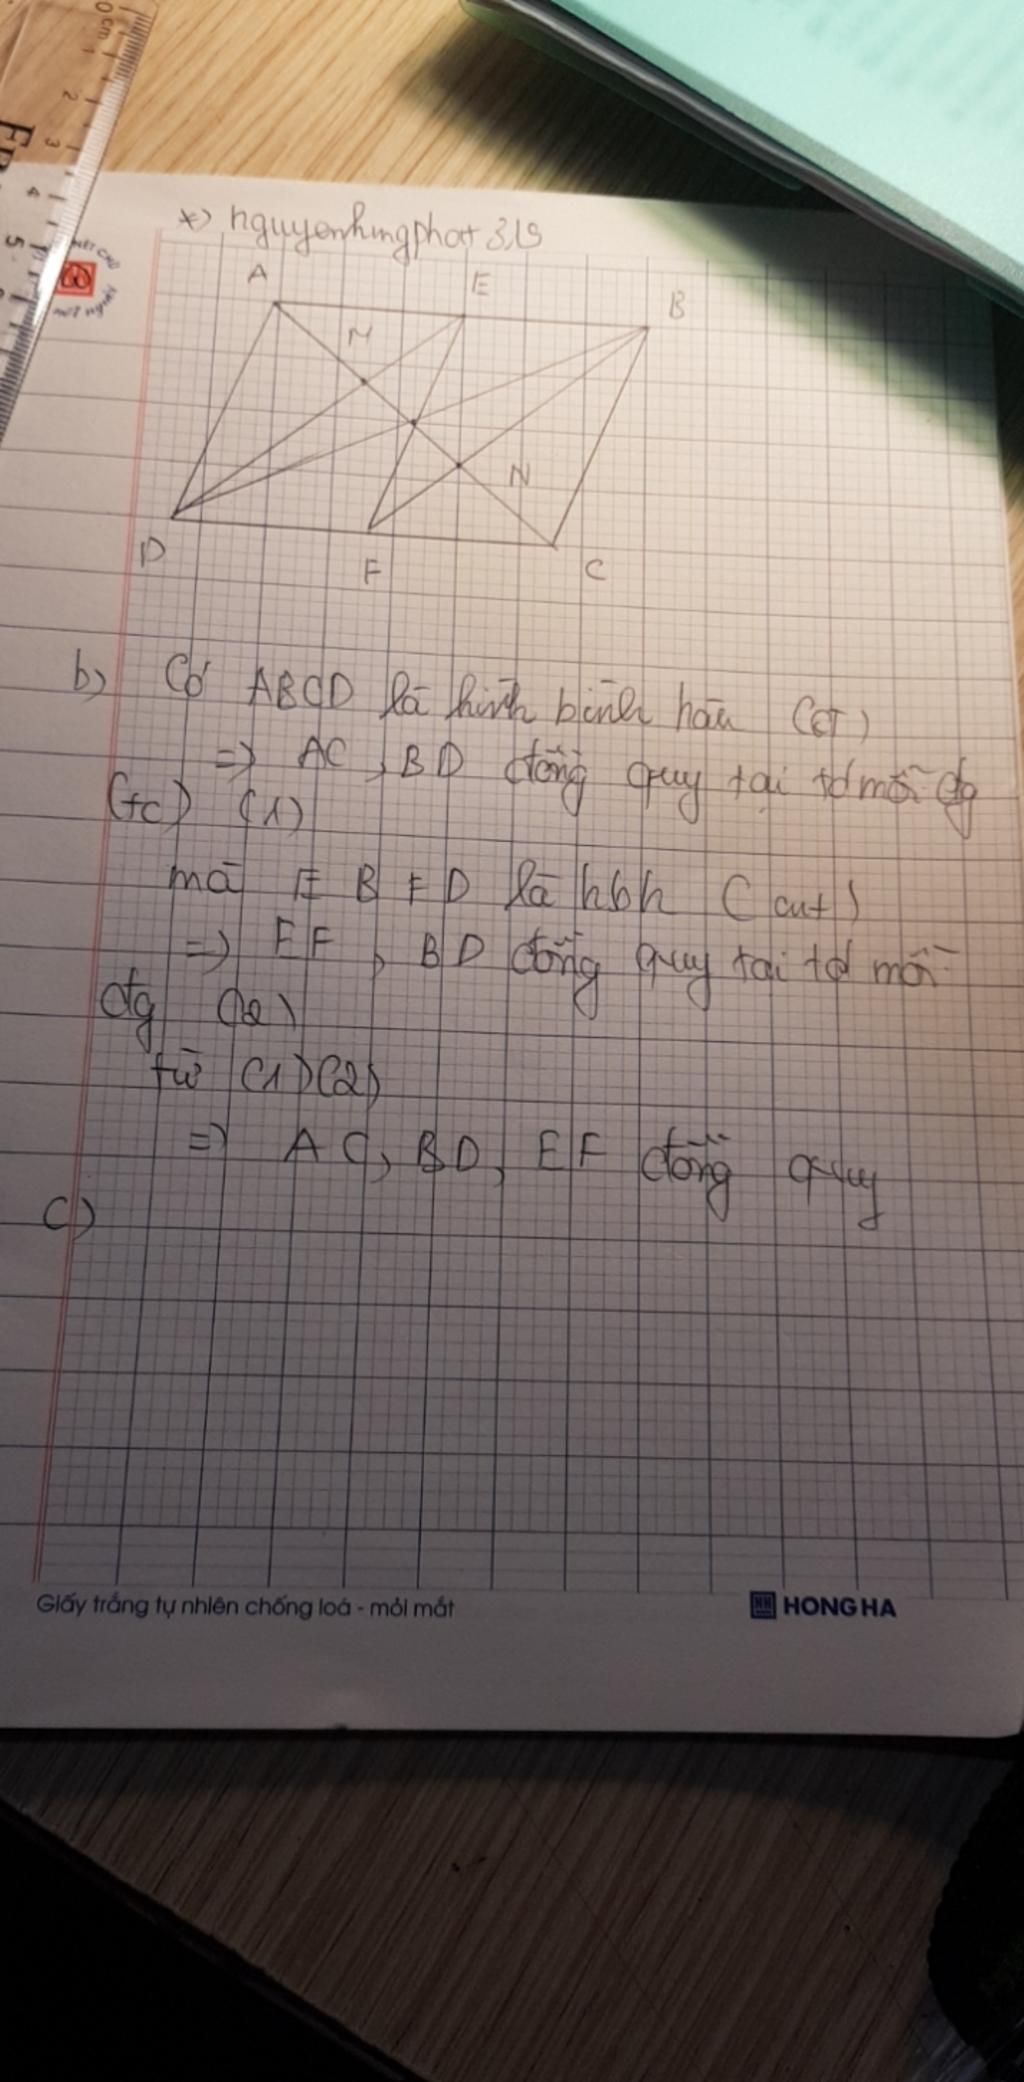 0cm 1 2 3 4 5
*) nguyenhungphat 3,15
A E B
M
N
D F C
b) Có ABCD là hình bình hàn (GT)
=> AC, BD đồng quy tại tđ mỗi đg
(tc) (1)
mà EBFD là hbh (cmt)
=> EF, BD đồng quy tại tđ mỗi
đg (2)
từ (1)(2)
=> AC, BD, EF đồng quy
c)
Giấy trắng tự nhiên chống loá - mỏi mắt
HONG HA